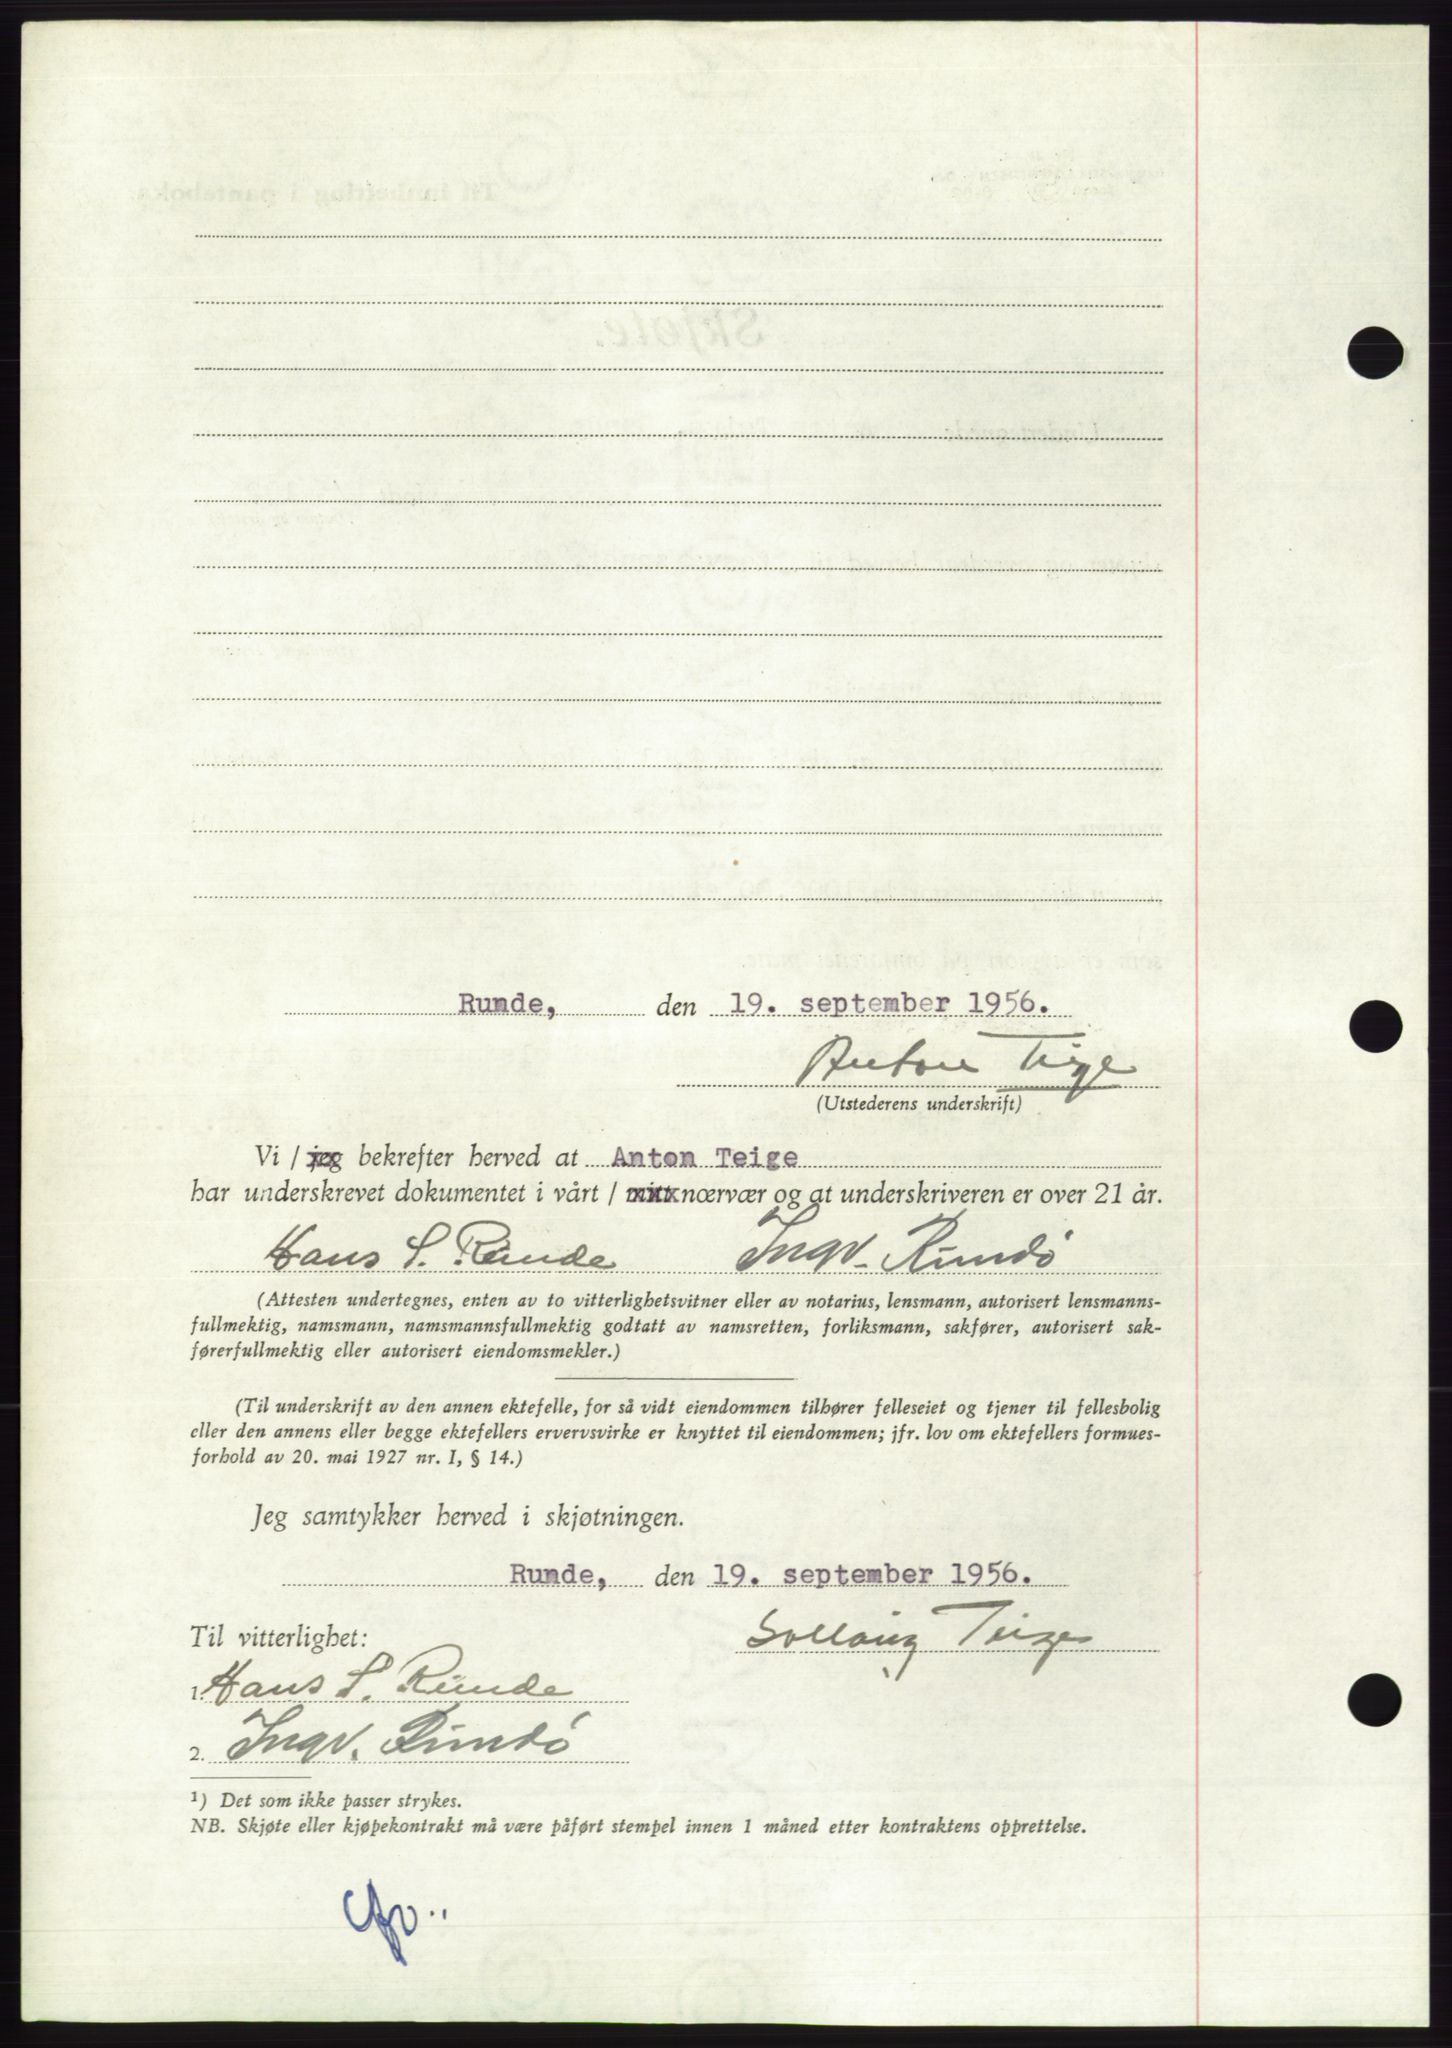 Runde, den 19. september 1956.
Anton Teige
(Utstederens underskrift)
Vi / jeg bekrefter herved at Anton Teige
har underskrevet dokumentet i vårt / mitt nœrvær og at underskriveren er over 21 år.
Hans S. Runde Ingv. Rundö
(Attesten undertegnes, enten av to vitterlighetsvitner eller av notarius, lensmann, autorisert lensmanns-
fullmektig, namsmann, namsmannsfullmektig godtatt av namsretten, forliksmann, sakfører, autorisert sak-
førerfullmektig eller autorisert eiendomsmekler.)
(Til underskrift av den annen ektefelle, for så vidt eiendommen tilhører felleseiet og tjener til fellesbolig
eller den annens eller begge ektefellers ervervsvirke er knyttet til eiendommen; jfr. lov om ektefellers formues-
forhold av 20. mai 1927 nr. I, § 14.)
Jeg samtykker herved i skjøtningen.
Runde, den 19. september 1956.
Til vitterlighet:
Teige
1. Hans S. Runde
2. Ingv. Rundö
¹) Det som ikke passer strykes.
NB. Skjøte eller kjøpekontrakt må være påført stempel innen 1 måned etter kontraktens opprettelse.